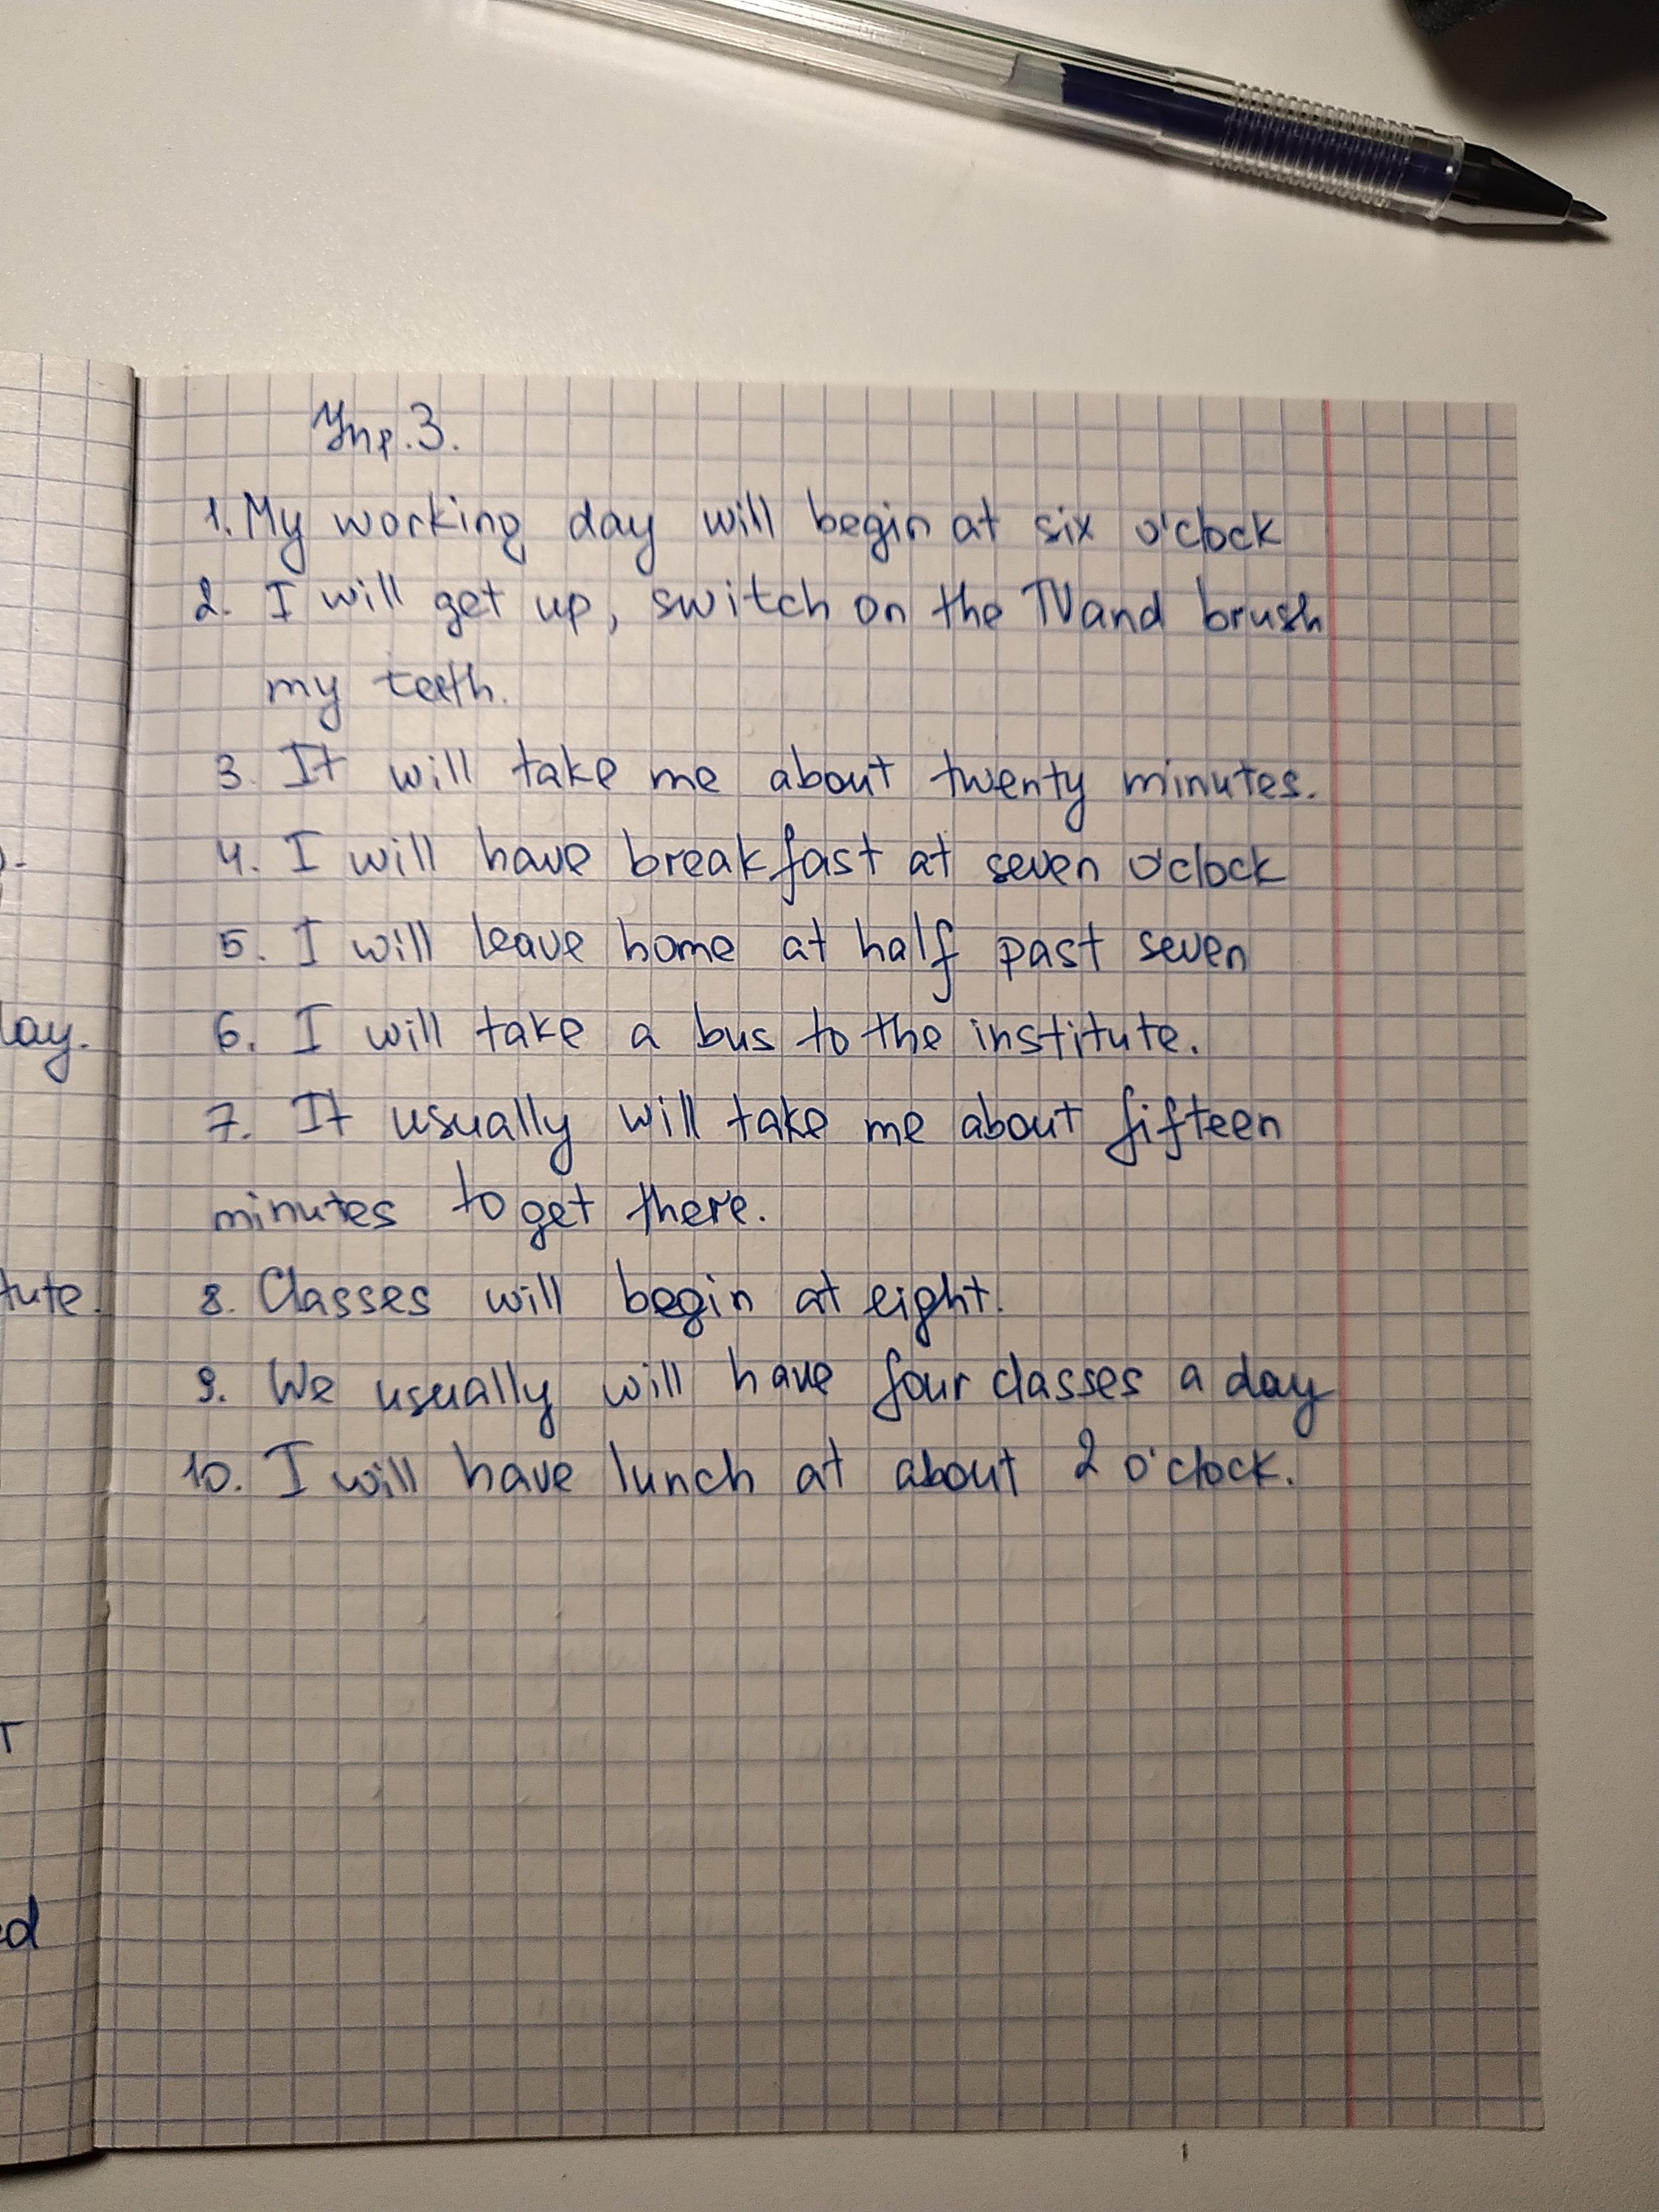 Упр.3.
1. My working day will begin at six o'clock
2. I will get up, switch on the TV and brush
my teeth.
3. It will take me about twenty minutes.
4. I will have breakfast at seven o'clock
5. I will leave home at half past seven
lay.
6. I will take a bus to the institute.
7. It usually will take me about fifteen
minutes to get there.
tute.
8. Classes will begin at eight.
9. We usually will have four classes a day
10. I will have lunch at about 2 o'clock.
ed